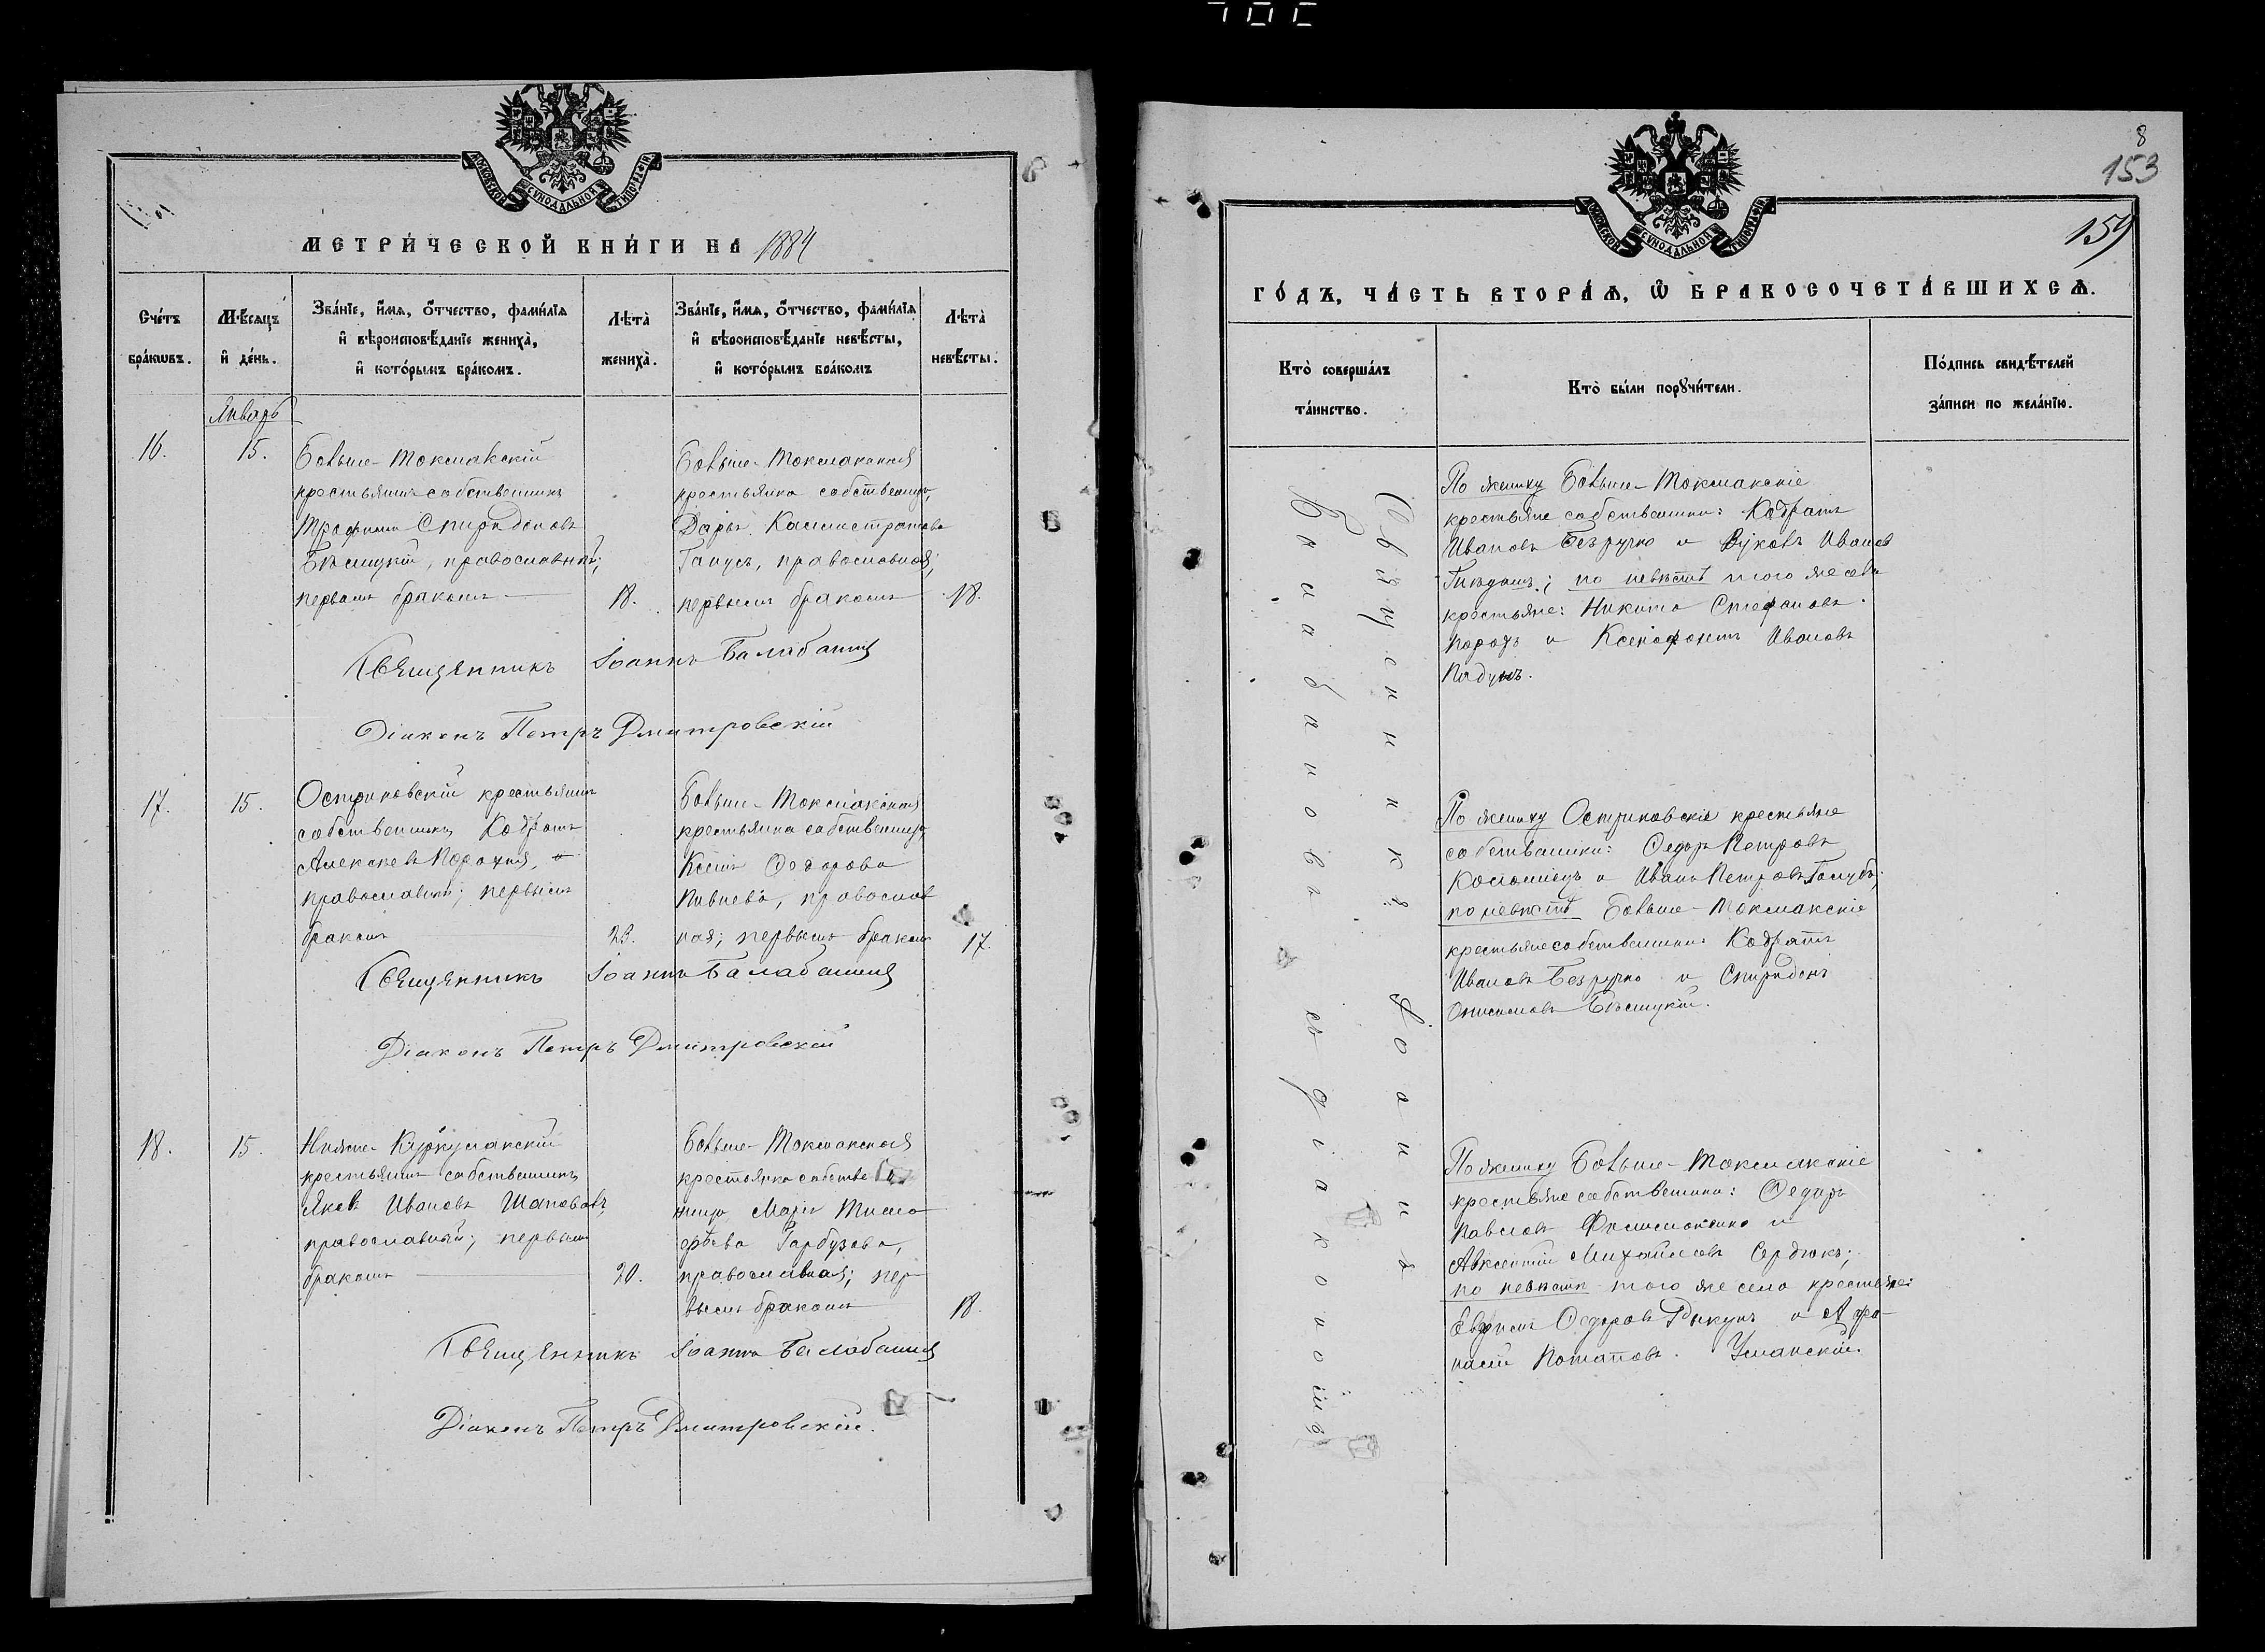 МОСКОВСКОЙ СѴНОДАЛЬНОЙ ТИПОГРАФІИ
МЕТРИ́ЧЕСКОЙ КНИ́ГИ НА 1884
Сче́тъ бра́кѡвъ.
Мѣ́сяцъ и҆ де́нь.
Зва́нїе, и҆́мѧ, ѻ҆́тчество, фами́лїѧ
и҆ вѣроисповѣ́данїе жениха̀,
и҆ кото́рымъ бра́комъ.
Лѣта̀ жениха̀.
Зва́нїе, и҆́мѧ, ѻ҆́тчество, фами́лїѧ
и҆ вѣроисповѣ́данїе невѣ́сты,
и҆ кото́рымъ бра́комъ
Лѣта̀ невѣ́сты.
Январь
16.
15.
Больше-Токмакскій
крестьянинъ собственникъ
Трофимъ Спиридоновъ
Бѣлицкій, православный;
первымъ бракомъ
18.
Больше-Токмакская
крестьянка собственница
Дарья Каллистратова
Ганусъ, православная;
первымъ бракомъ
18.
Священникъ Іоаннъ Балабанія
Діаконъ Петръ Дмитровскій
17.
15.
Остриковскій крестьянинъ
собственникъ Кодратъ
Алексѣевъ Порохня,
православный; первымъ
бракомъ
23.
Больше-Токмакская
крестьянка собственница
Ксенія Ѳедорова
Павлева, православ
ная; первымъ бракомъ
17.
Священникъ Іоаннъ Балабанія
Діаконъ Петръ Дмитровскій
18.
15.
Нижне-Куркулакскій
крестьянинъ собственникъ
Яковъ Ивановъ Шаповалъ,
православный; первымъ
бракомъ
20.
Больше-Токмакская
крестьянка собствен
ница Марія Тимо
ѳеева Гарбузова,
православная; пер
вымъ бракомъ
18.
Священникъ Іоаннъ Балабанія
Діаконъ Петръ Дмитровскій.
8
153
159
МОСКОВСКОЙ СѴНОДАЛЬНОЙ ТИПОГРАФІИ
ГО́ДЪ, ЧА́СТЬ ВТОРА́Ѧ, Ѡ҆ БРАКОСОЧЕТА́ВШИХСѦ.
Кто̀ соверша́лъ
та́инство.
Кто̀ бы́ли порꙋчи́тели.
По́дпись свидѣ́телей
за́писи по жела́нїю.
Священникъ Іоаннъ
Балабановъ съ діакономъ
По жениху Больше-Токмакскіе
крестьяне собственники: Кодратъ
Ивановъ Безручко и Ивановъ
по невѣстѣ того же села
крестьяне: Никита Стефановъ
Порохъ и Ксенофонтъ Ивановъ
Падунъ.
По жениху Остриковскіе крестьяне
собственники: Ѳедоръ Петровъ
Коломіецъ и Иванъ Петровъ Голубъ;
по невѣстѣ Больше-Токмакскіе
крестьяне собственники: Кодратъ
Ивановъ Безручко и Спиридонъ
Онисимовъ Бѣлицкій.
По жениху Больше-Токмакскіе
крестьяне собственники: Ѳедоръ
Павловъ Филимоненко и
Авксентій Михайловъ Сердюкъ;
по невѣстѣ того же села крестьяне:
Евфимъ Ѳедоровъ Рыкунъ и Афа-
насій Потаповъ Уманскій.